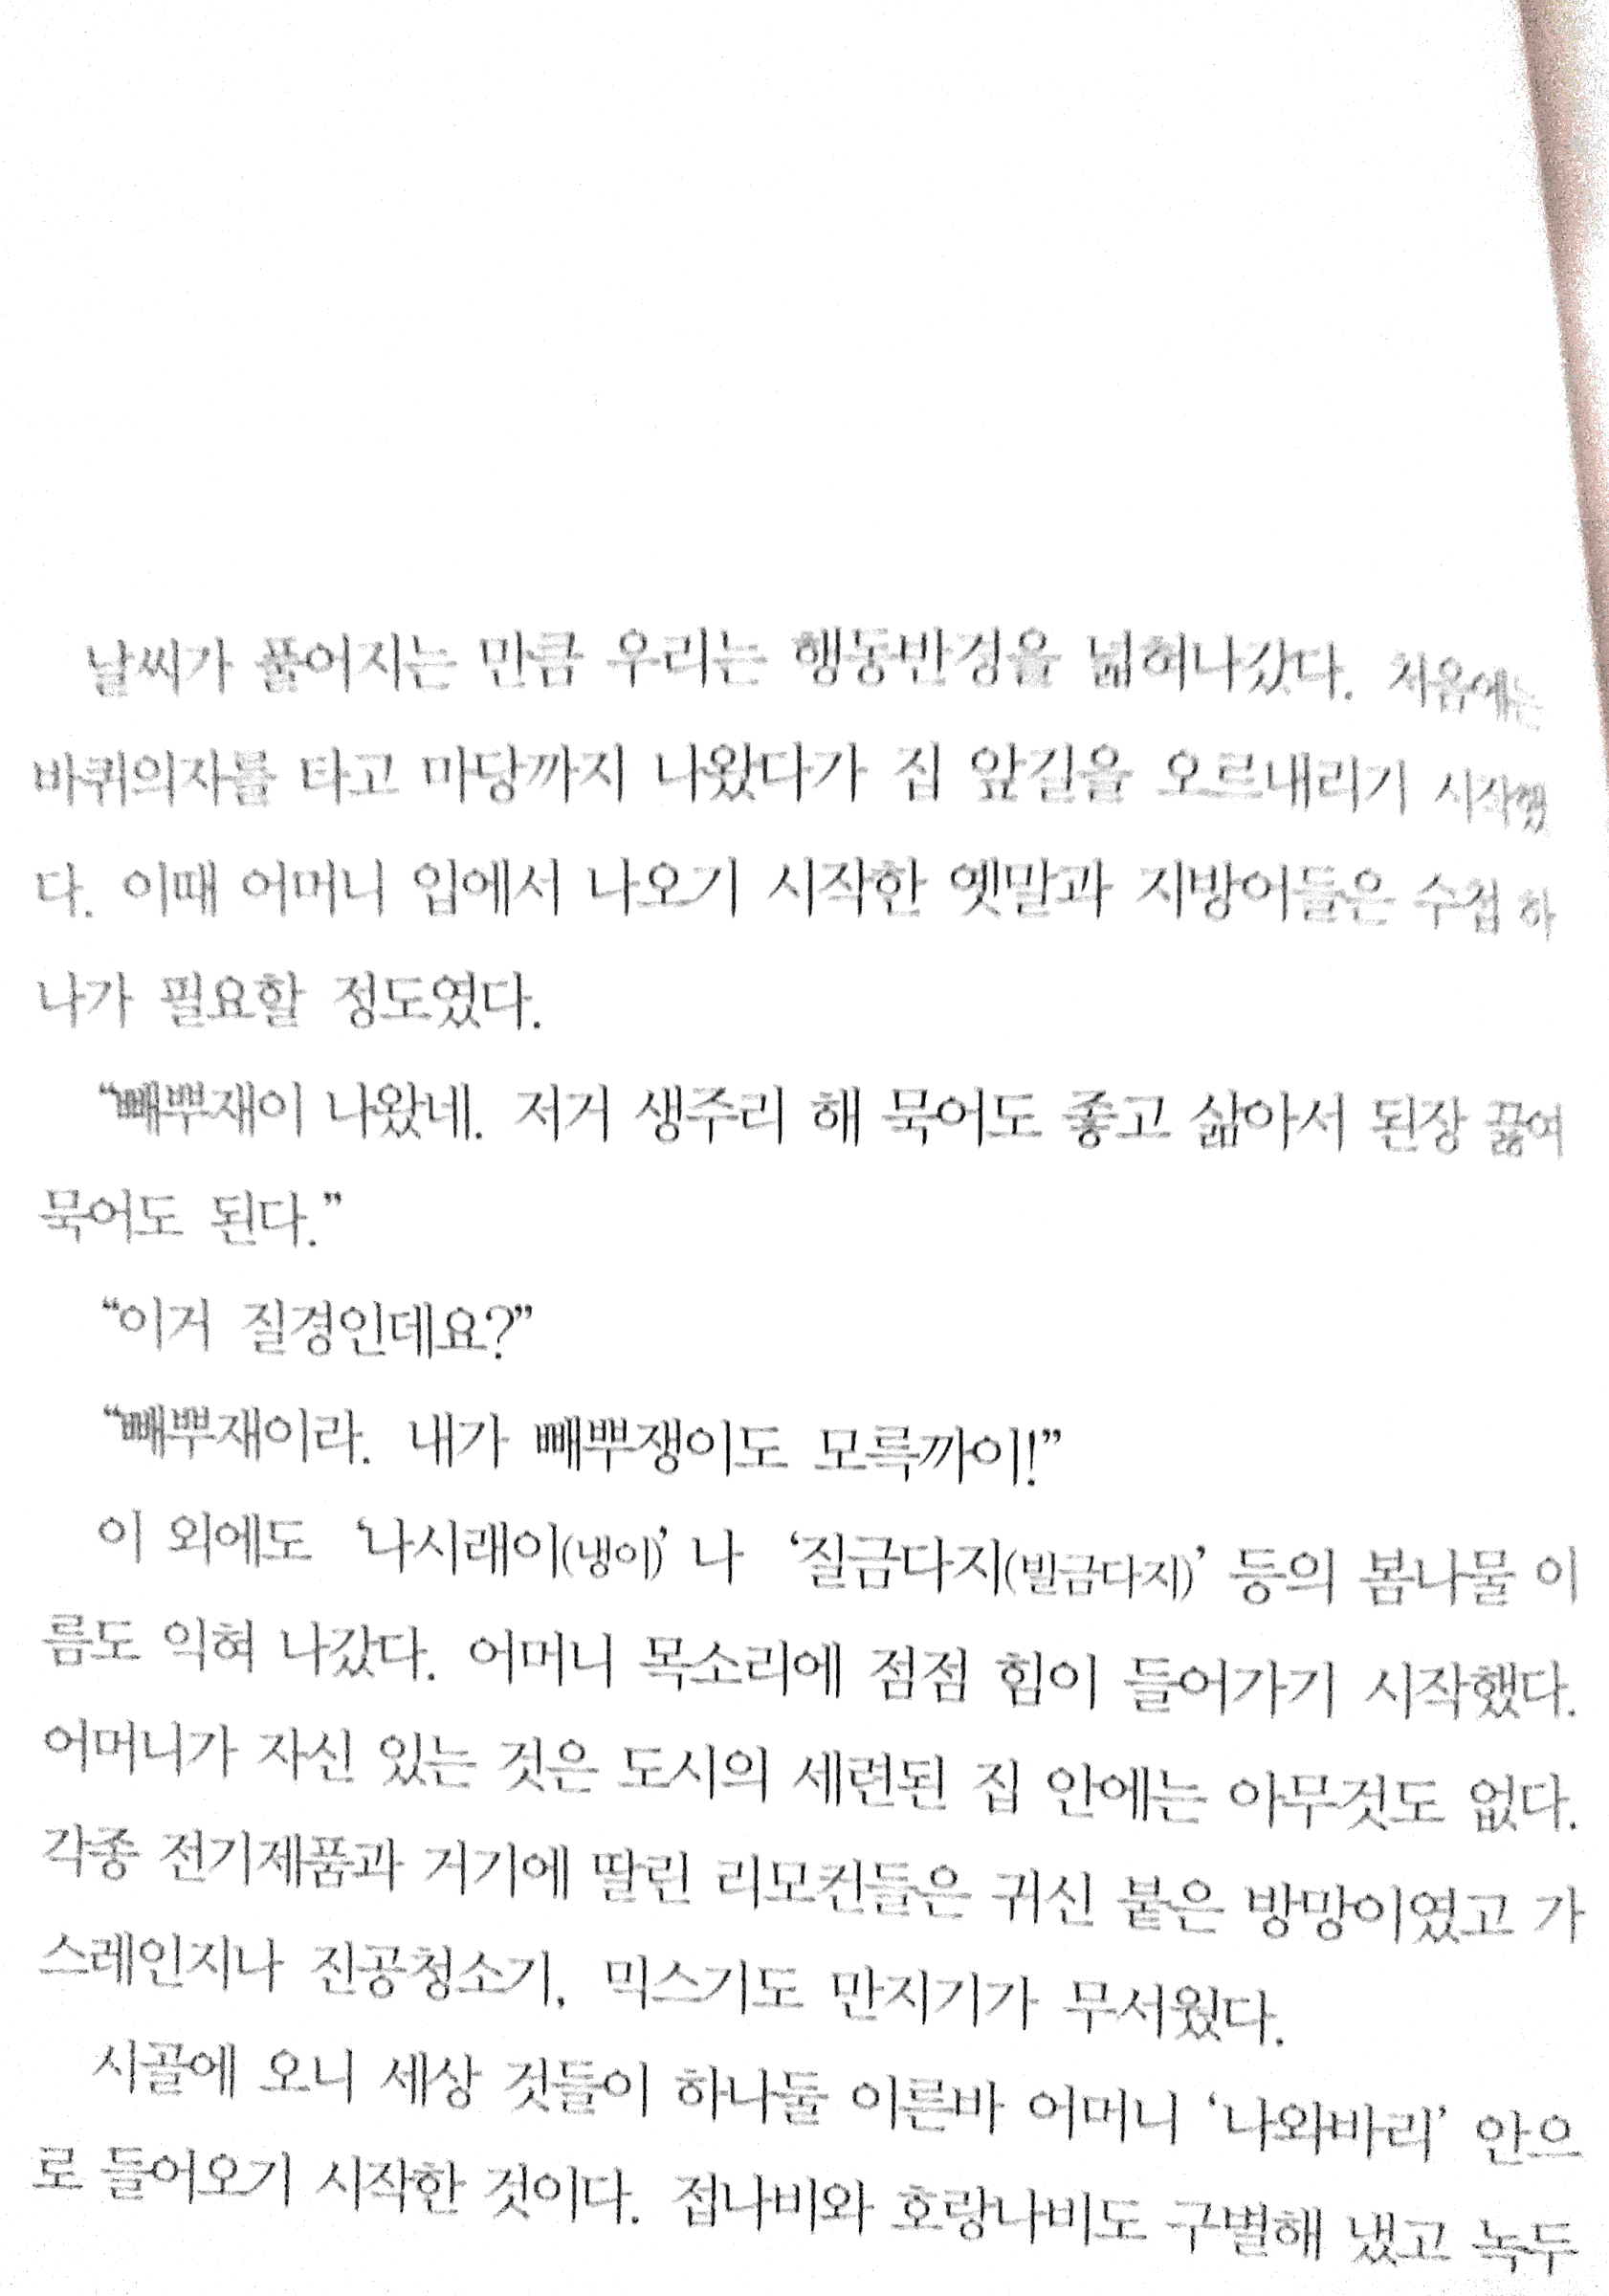 날씨가 풀어지는 만큼 우리는 행동반경을 넓혀나갔다. 처음에는
바퀴의자를 타고 마당까지 나왔다가 집 앞길을 오르내리기 시작했
다. 이때 어머니 입에서 나오기 시작한 옛말과 지방어들은 수첩 하
나가 필요할 정도였다.
“빼뿌재이 나왔네. 저거 생주리 해 묵어도 좋고 삶아서 된장 끓여
묵어도 된다.”
“이거 질경인데요?”
“빼뿌재이라. 내가 빼뿌쟁이도 모륵까이!”
이 외에도 ‘나시래이(냉이)’ 나 ‘질금다지(빌금다지)’ 등의 봄나물 이
름도 익혀 나갔다. 어머니 목소리에 점점 힘이 들어가기 시작했다.
어머니가 자신 있는 것은 도시의 세련된 집 안에는 아무것도 없다.
각종 전기제품과 거기에 딸린 리모컨들은 귀신 붙은 방망이였고 가
스레인지나 진공청소기, 믹스기도 만지기가 무서웠다.
시골에 오니 세상 것들이 하나둘 이른바 어머니 ‘나와바리’ 안으
로 들어오기 시작한 것이다. 접나비와 호랑나비도 구별해 냈고 녹두